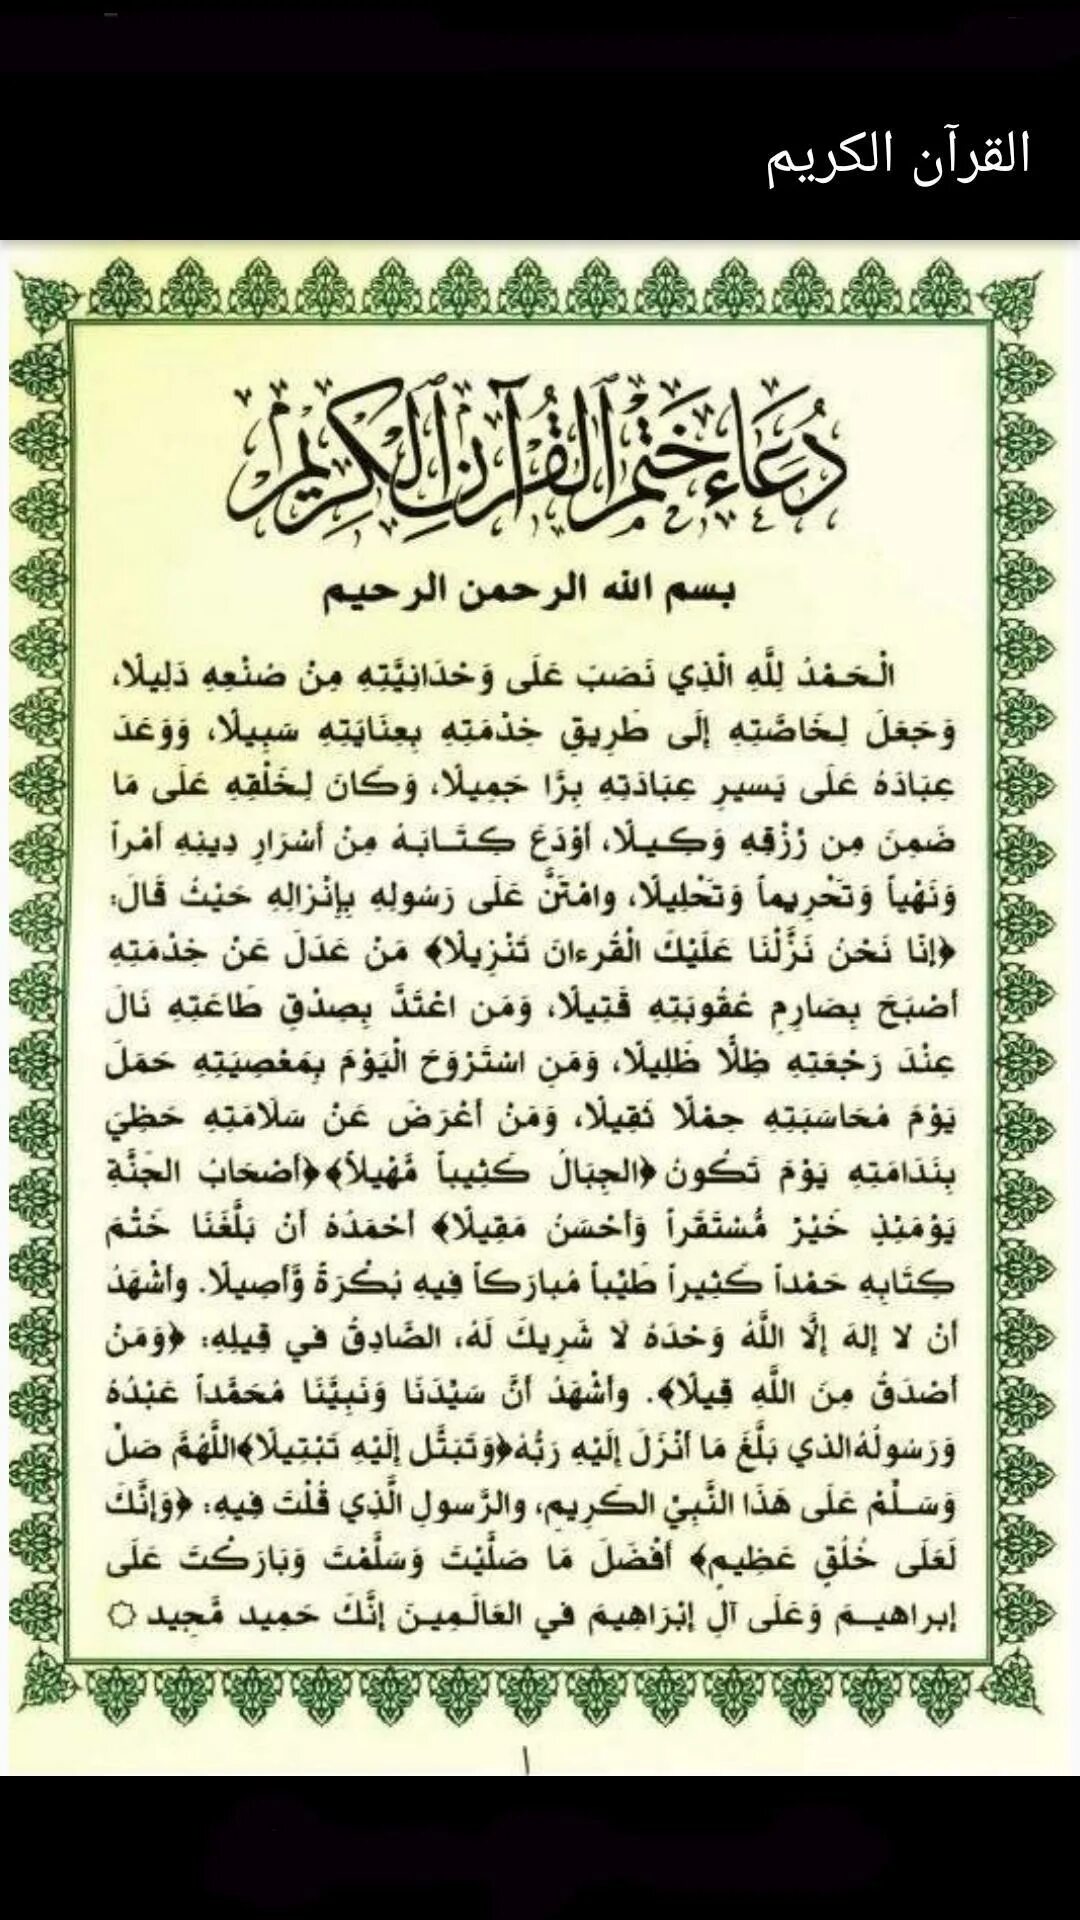 القرآن الكريم
دُعَاءُ خَتْمِ ٱلْقُرْآنِ ٱلْكَرِيمِ
بسم الله الرحمن الرحيم
الْحَمْدُ لِلَّهِ الَّذِي نَصَبَ عَلَى وَحْدَانِيَّتِهِ مِنْ صُنْعِهِ دَلِيلًا،
وَجَعَلَ لِخَاصَّتِهِ إِلَى طَرِيقِ خِدْمَتِهِ بِعِنَايَتِهِ سَبِيلًا، وَوَعَدَ
عِبَادَهُ عَلَى يَسيرِ عِبَادَتِهِ بِرًّا جَمِيلًا، وَكَانَ لِخَلْقِهِ عَلَى مَا
ضَمِنَ مِن رِّزْقِهِ وَكِيلًا، أوْدَعَ كِتَابَهُ مِنْ أَسْرَارِ دِينِهِ أمْراً
وَنَهْياً وَتَحْرِيماً وَتَحْلِيلًا، وامْتَنَّ عَلَى رَسُولِهِ بِإِنْزالِهِ حَيْثُ قَالَ:
﴿إِنَّا نَحْنُ نَزَّلْنَا عَلَيْكَ الْقُرءانَ تَنْزِيلًا﴾ مَنْ عَدَلَ عَنْ خِدْمَتِهِ
أصْبَحَ بِصَارِمِ عُقُوبَتِهِ قَتِيلًا، وَمَن اعْتَدَّ بِصِدْقِ طَاعَتِهِ نَالَ
عِنْدَ رَجْعَتِهِ ظِلًّا ظَلِيلًا، وَمَنِ اسْتَرْوَحَ الْيَوْمَ بِمَعْصِيَتِهِ حَمَلَ
يَوْمَ مُحَاسَبَتِهِ حِمْلًا ثَقِيلًا، وَمَنْ أعْرَضَ عَنْ سَلَامَتِهِ حَظِيَ
بِنَدَامَتِهِ يَوْمَ تَكُونُ ﴿الجِبَالُ كَثِيباً مَّهْيلاً﴾﴿أصْحَابُ الجَنَّةِ
يَوْمَئِذٍ خَيْرٌ مُّسْتَقَراً وَأحْسَنُ مَقِيلًا﴾ أحْمَدُهُ أنْ بَلَّغَنَا خَتْمَ
كِتَابِهِ حَمْداً كَثِيراً طَيِّباً مُبارَكاً فِيهِ بُكْرَةً وَّأصِيلًا. وأشْهَدُ
أنْ لا إلهَ إلَّا اللَّهُ وَحْدَهُ لَا شَرِيكَ لَهُ، الصَّادِقُ في قِيلِهِ: ﴿وَمَنْ
أصْدَقُ مِنَ اللَّهِ قِيلًا﴾. وأشْهَدُ أنَّ سَيِّدَنَا وَنَبِيَّنَا مُحَمَّداً عَبْدُهُ
وَرَسُولُهُ الذي بَلَّغَ مَا أنْزَلَ إلَيْهِ رَبُّهُ ﴿وَتَبَتَّل إلَيْهِ تَبْتِيلًا﴾اللَّهُمَّ صَلِّ
وَسَلِّمْ عَلَى هَذَا النَّبِيِّ الكَرِيمِ، والرَّسولِ الَّذِي قُلْتَ فِيهِ: ﴿وَإِنَّكَ
لَعَلَى خُلُقٍ عَظِيمٍ﴾ أفْضَلَ مَا صَلَّيْتَ وَسَلَّمْتَ وَبَارَكْتَ عَلَى
إبراهيمَ وَعَلَى آلِ إبْرَاهِيمَ في العَالَمِينَ إنَّكَ حَمِيد مَّجِيد ۞
١